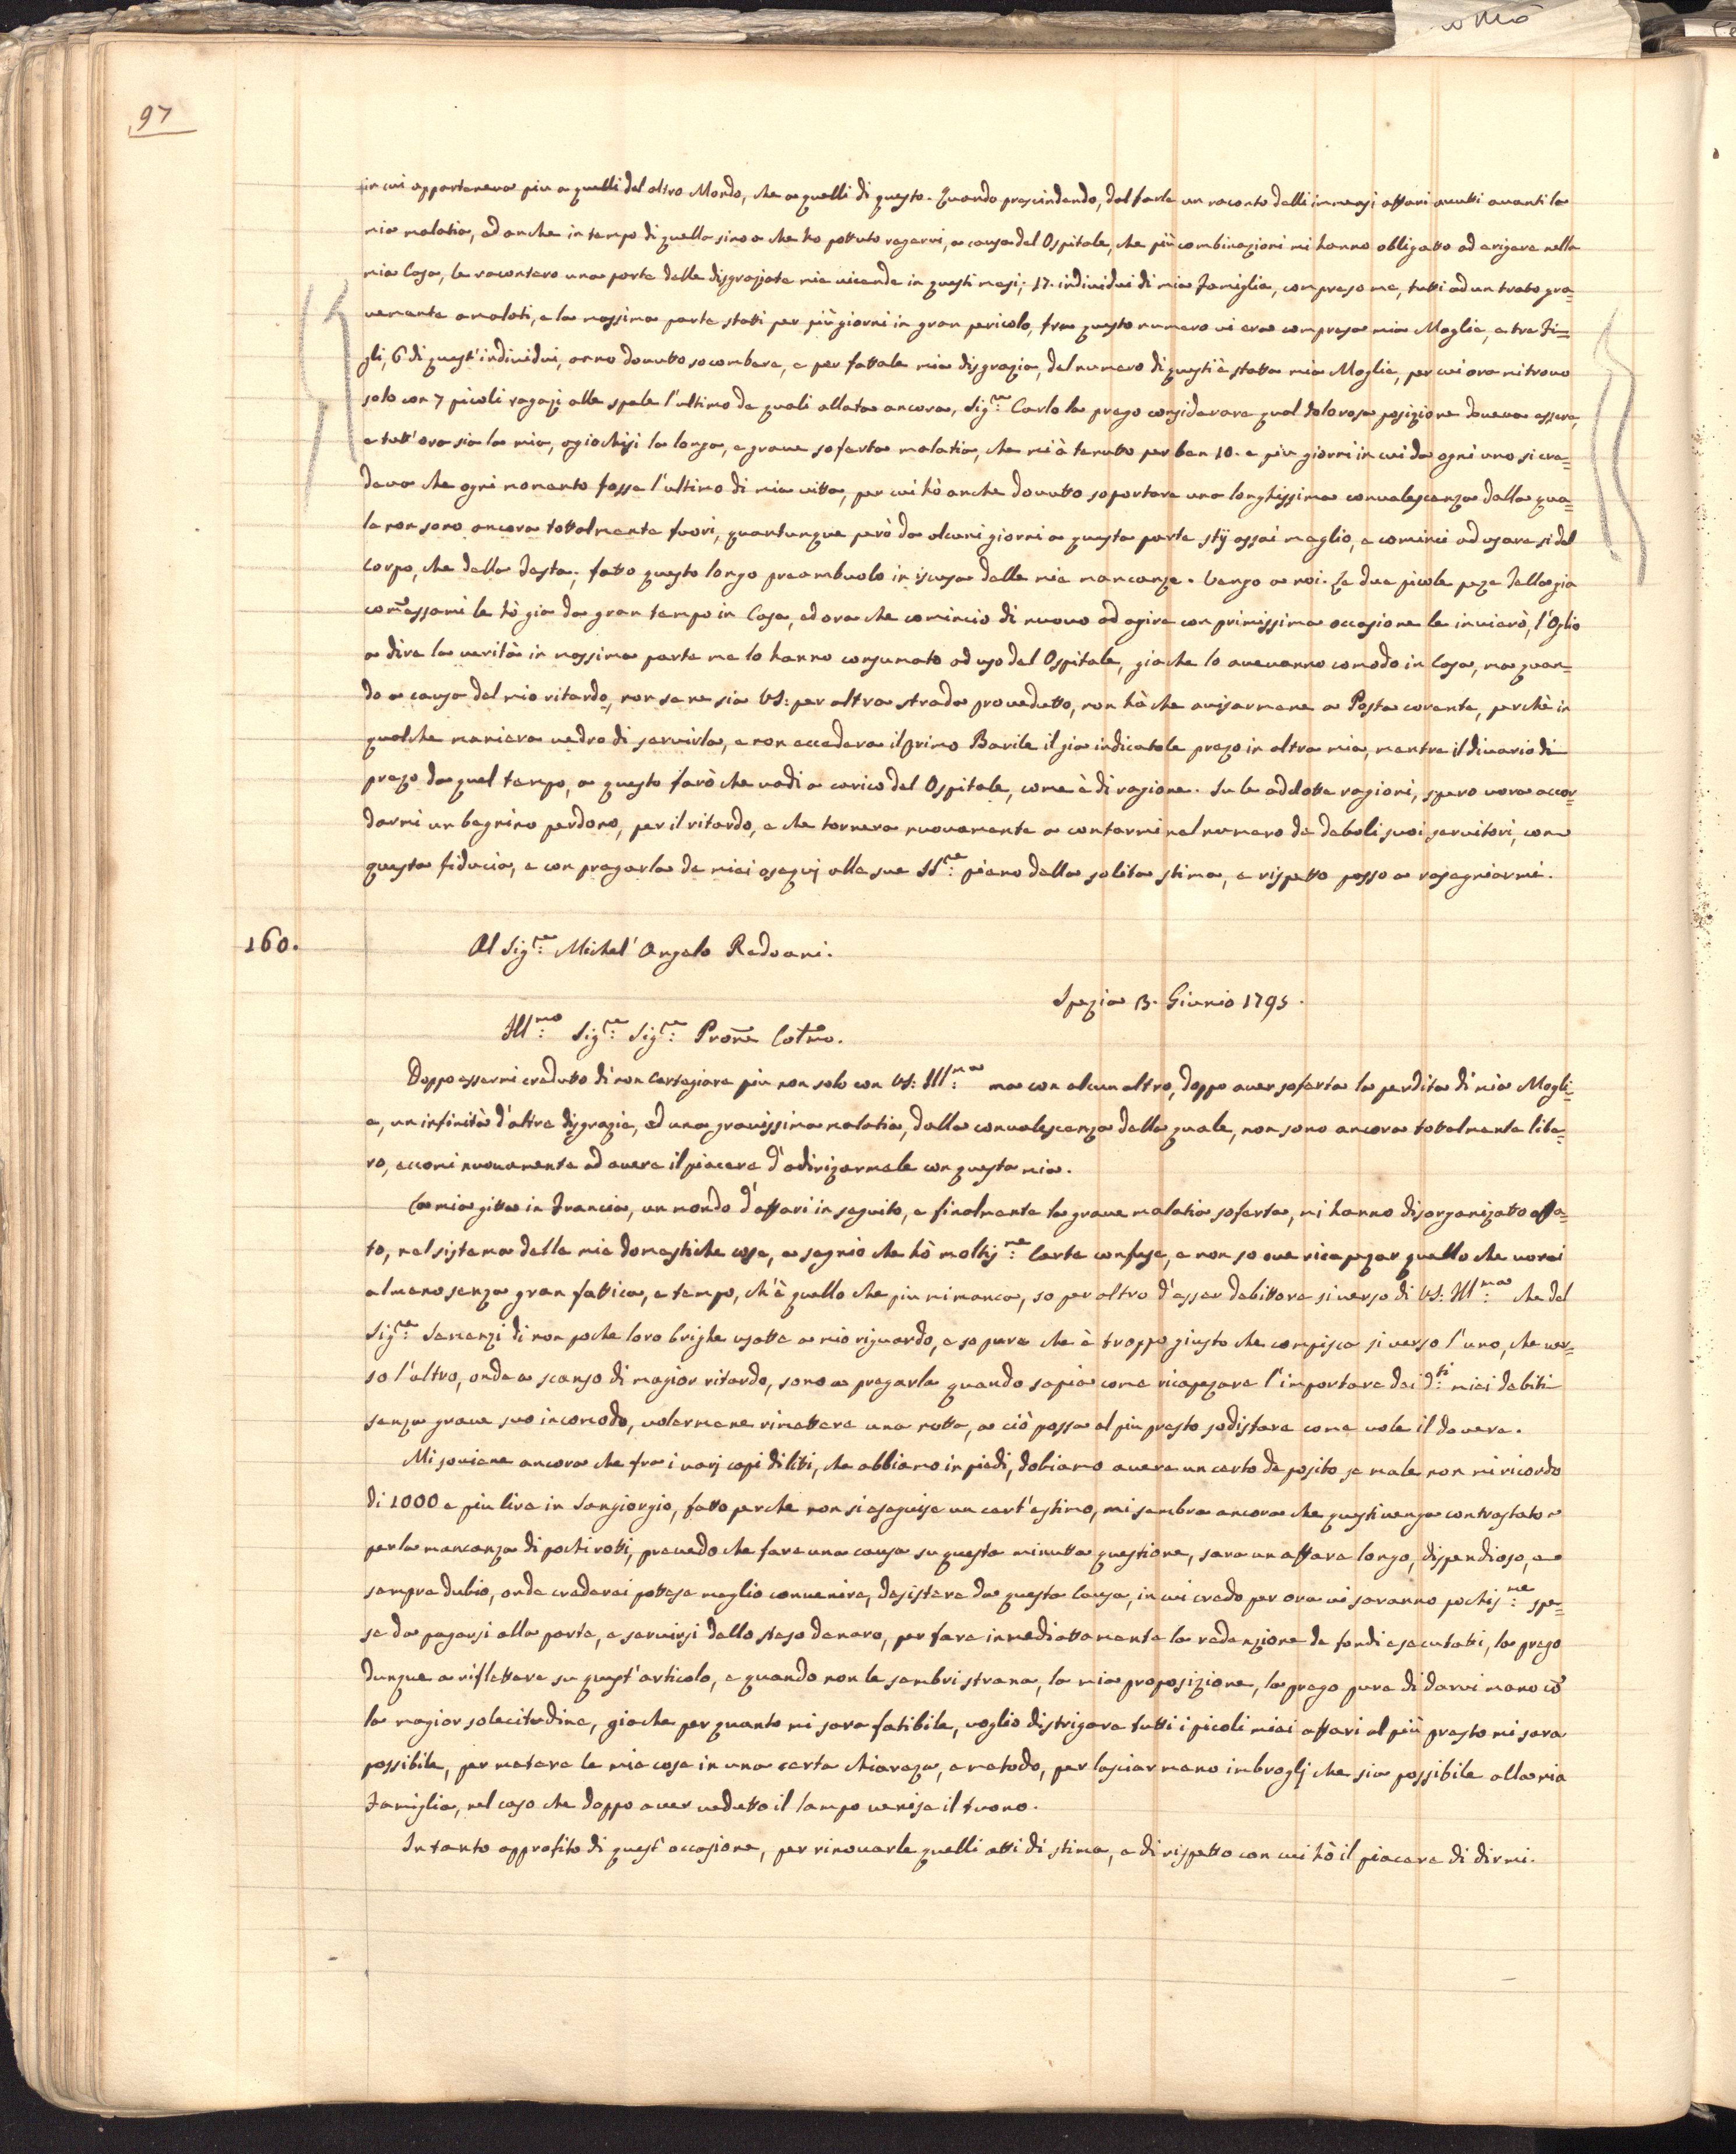 97
in cui apparteneva piu a quelli del altro Mondo, che a quelli di questo. Quando prescindendo, dal farle un raconto delli immensi affari avutti avanti la
mia malatia, ed anche in tempo di quella sino a che ho pottuto regervi, a causa del Ospitale, che più combinazioni mi hanno obligatto ad erigere nella
mia Casa, le raconterò una parte delle disgraziate mie vicende in questi mesi; 17. individui di mia Famiglia, compreso me, tutti ad un tratto gra=
vemente amalati, e la massima parte statti per più giorni in gran pericolo, fra questo numero vi era compresa mia Moglie, e tre Fi=
gli, 6 di quest'individui, anno dovutto socombere, e per fattale mia disgrazia, del numero di questi è statta mia Moglie, per cui ora mi trovo
solo con 7 picoli ragazi alle spale l'ultimo de quali allata ancora, Sig:re Carlo la prego considerare qual dolorosa posizione doveva essere,
e tutt'ora sia la mia, agiochisi la longa, e grave soferta malatia, che mi à tenutto per ben 10. e piu giorni in cui da ogni uno si cre=
deva che ogni momento fosse l'ultimo di mia vitta, per cui hò anche dovutto soportare una longhissima convalescenza dalla qua=
le non sono ancora tottalmente fuori, quantunque però da alcuni giorni a questa parte stij assai meglio, e cominci ad usare si del
Corpo, che della Testa; fatto questo longo preambuolo in iscusa delle mie mancanze. Vengo a noi. Le due picole peze Tella gia
com̄essami le hò gia da gran tempo in Casa, ed ora che comincio di nuovo ad agire con primissima occasione le invierò, l'Oglio
a dire la verità in massima parte me lo hanno consumato ad uso del Ospitale, gia che lo avevanno comodo in Casa, ma quan=
do a causa del mio ritardo, non se ne sia VS: per altra strada provedutto, non hà che avisarmene a Posta corente, perchè in
qualche maniera vedrò di servirla, e non eccederà il primo Barile il gia indicatole prezo in altra mia, mentre il divario di
prezo da quel tempo, a questo farò che vadi a carico del Ospitale, come è di ragione. Su le addotte ragioni, spero vorà accor=
darmi un begnino perdono, per il ritardo, e che tornerà nuovamente a contarmi nel numero de deboli suoi servitori, con
questa fiducia, e con pregarla de miei osequj alle sue SS:re pieno della solita stima, e rispetto passo a rasegniarmi.
160.
Al Sig:re Michel' Angelo Redoani.
Spezia 13. Giunio 1795.
Ill:mo Sig:re Sig:re Prone Colmo.
Doppo essermi credutto di non Carteggiare piu non solo con VS: Ill:ma ma con alcun altro, doppo aver soferta la perdita di mia Mogli=
e, un infinità d'altre disgrazie, ed una gravissima malatia, dalla convalescenza della quale, non sono ancora tottalmente libe=
ro, eccomi nuovamente ad avere il piacere d'adirizarmele con questa mia.
La mia gitta in Francia, un mondo d'affari in seguito, e finalmente la grave malatia soferta, mi hanno disorganizatto affa=
to, nel sistema delle mie domestiche cose, a segnio che hò moltis:me Carte confuse, e non so ove ricapezar quello che vorei
almeno senza gran fattica, e tempo, ch'è quello che piu mi manca, so per altro d'esser debittore si verso di VS: Ill:ma che del
Sig:re Semenzi di non poche loro brighe usatte a mio riguardo, e so pure che è troppo giusto che compisca si verso l'uno, che ver=
so l'altro, onde a scanso di magior ritardo, sono a pregarla quando sapia come ricapezare l'importare dei d:ti miei debiti
senza grave suo incomodo, volermene rimettere una notta, a ciò possa al piu presto sodisfare come vole il dovere.
Mi soviene ancora che fra i varj capi di liti, che abbiamo in piedi, dobiamo avere un certo deposito se male non mi ricordo
di 1000 e piu lire in Sangiorgio, fatto perche non si eseguise un cert'estimo, mi sembra ancora che questi venga contrastato
per la mancanza di pochi rotti, prevedo che fare una causa su questa minutta questione, sara un affare longo, dispendioso, e
sempre dubio, onde crederei pottese meglio convenire, desistere da questa Causa, in cui credo per ora vi saranno pochis:me spe=
se da pagarsi alla parte, e servirsi dello steso denaro, per fare inmediattamente la redenzione de fondi esecutatti, la prego
dunque a riflettere su quest'articolo, e quando non le sembri strana, la mia proposizione, la prego pure di darvi mano cō
la magior solecitudine, gia che per quanto mi sara fatibile, voglio distrigare tutti i picoli miei affari al più presto mi sara
possibile, per metere le mie cose in una certa chiareza, e metodo, per lasciar meno imbroglj che sia possibile alla mia
Famiglia, nel caso che doppo aver vedutto il lampo venise il tuono.
In tanto approfito di quest'occasione, per rinovarle quelli atti di stima, e di rispetto con cui hò il piacere di dirmi.